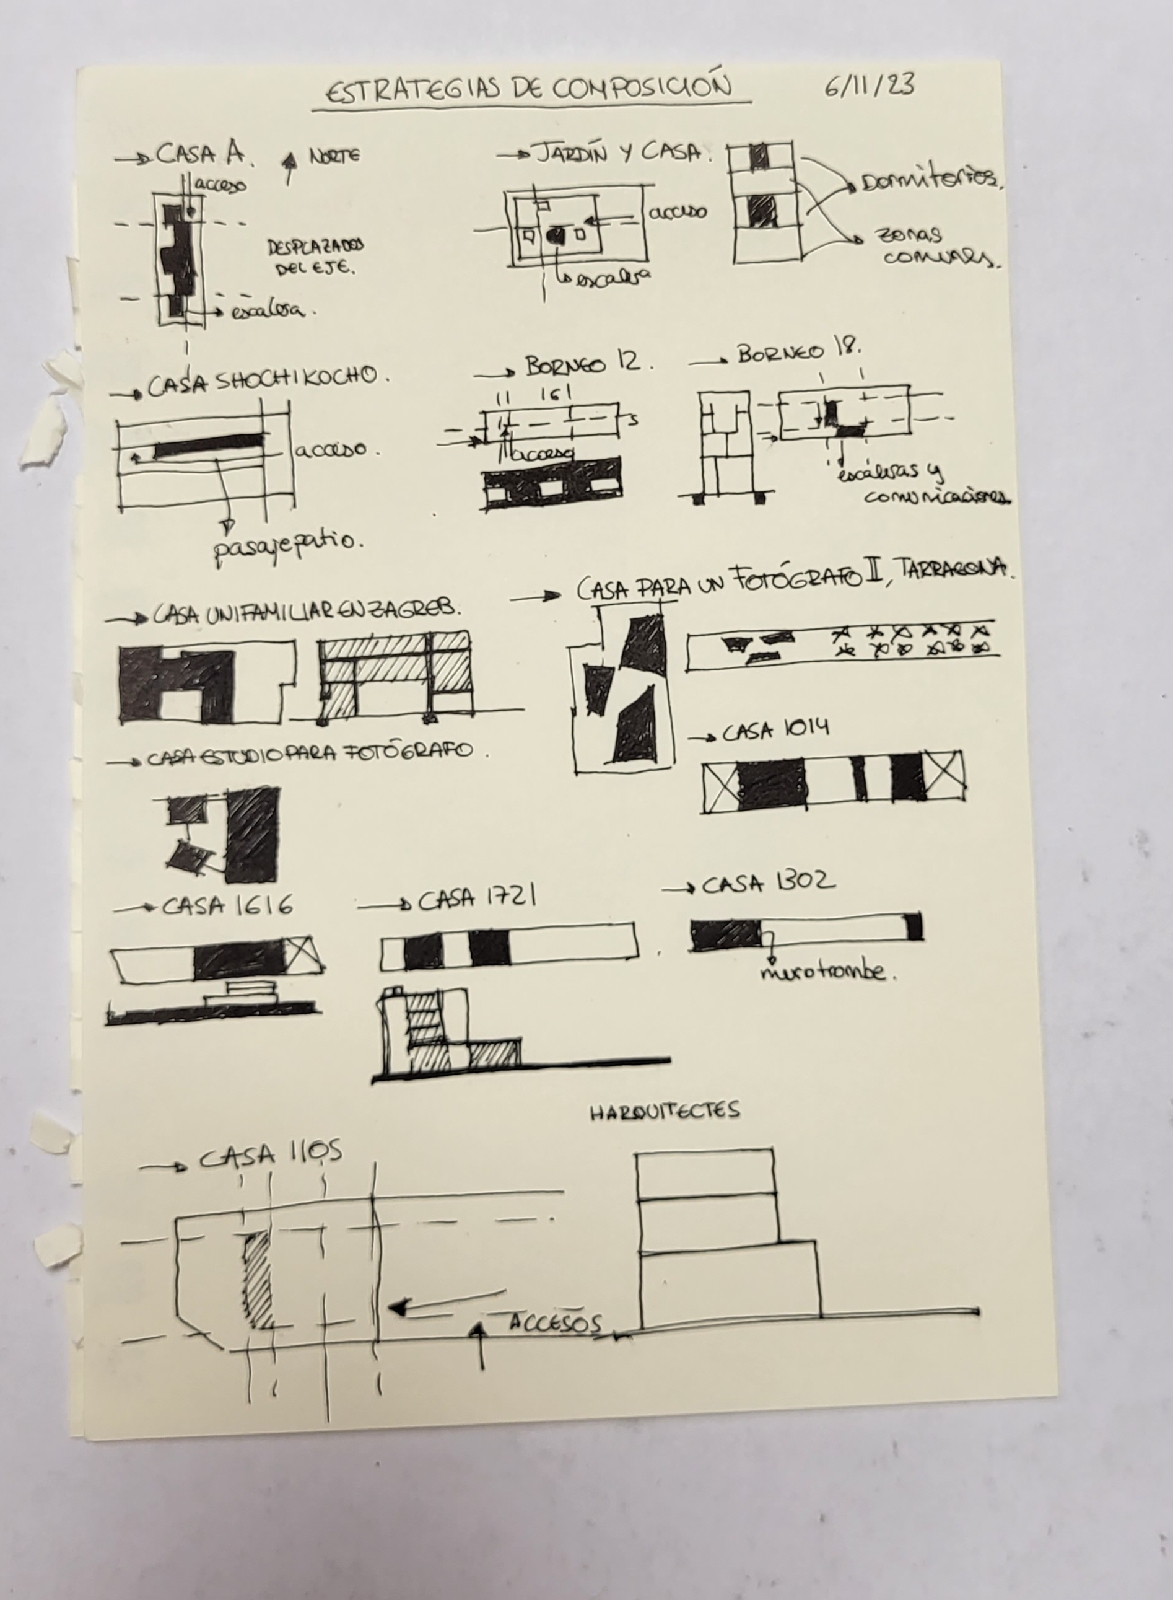 ESTRATEGIAS DE COMPOSICIÓN
6/11/23
CASA A.
NORTE
acceso
DESPLAZADOS
DEL EJE.
escalera.
JARDÍN Y CASA.
acceso
escalera
Dormitorios.
zonas
comunes.
CASA SHOCHIKOCHO.
acceso.
pasaje patio.
BORNEO 12.
acceso
BORNEO 18.
escaleras y
comunicaciones
CASA UNIFAMILIAR EN ZAGREB.
CASA PARA UN FOTÓGRAFO II, TARRAGONA.
CASA ESTUDIO PARA FOTÓGRAFO.
CASA 1014
CASA 1616
CASA 1721
CASA 1302
muro trombe.
HARQUITECTES
CASA 1105
ACCESOS